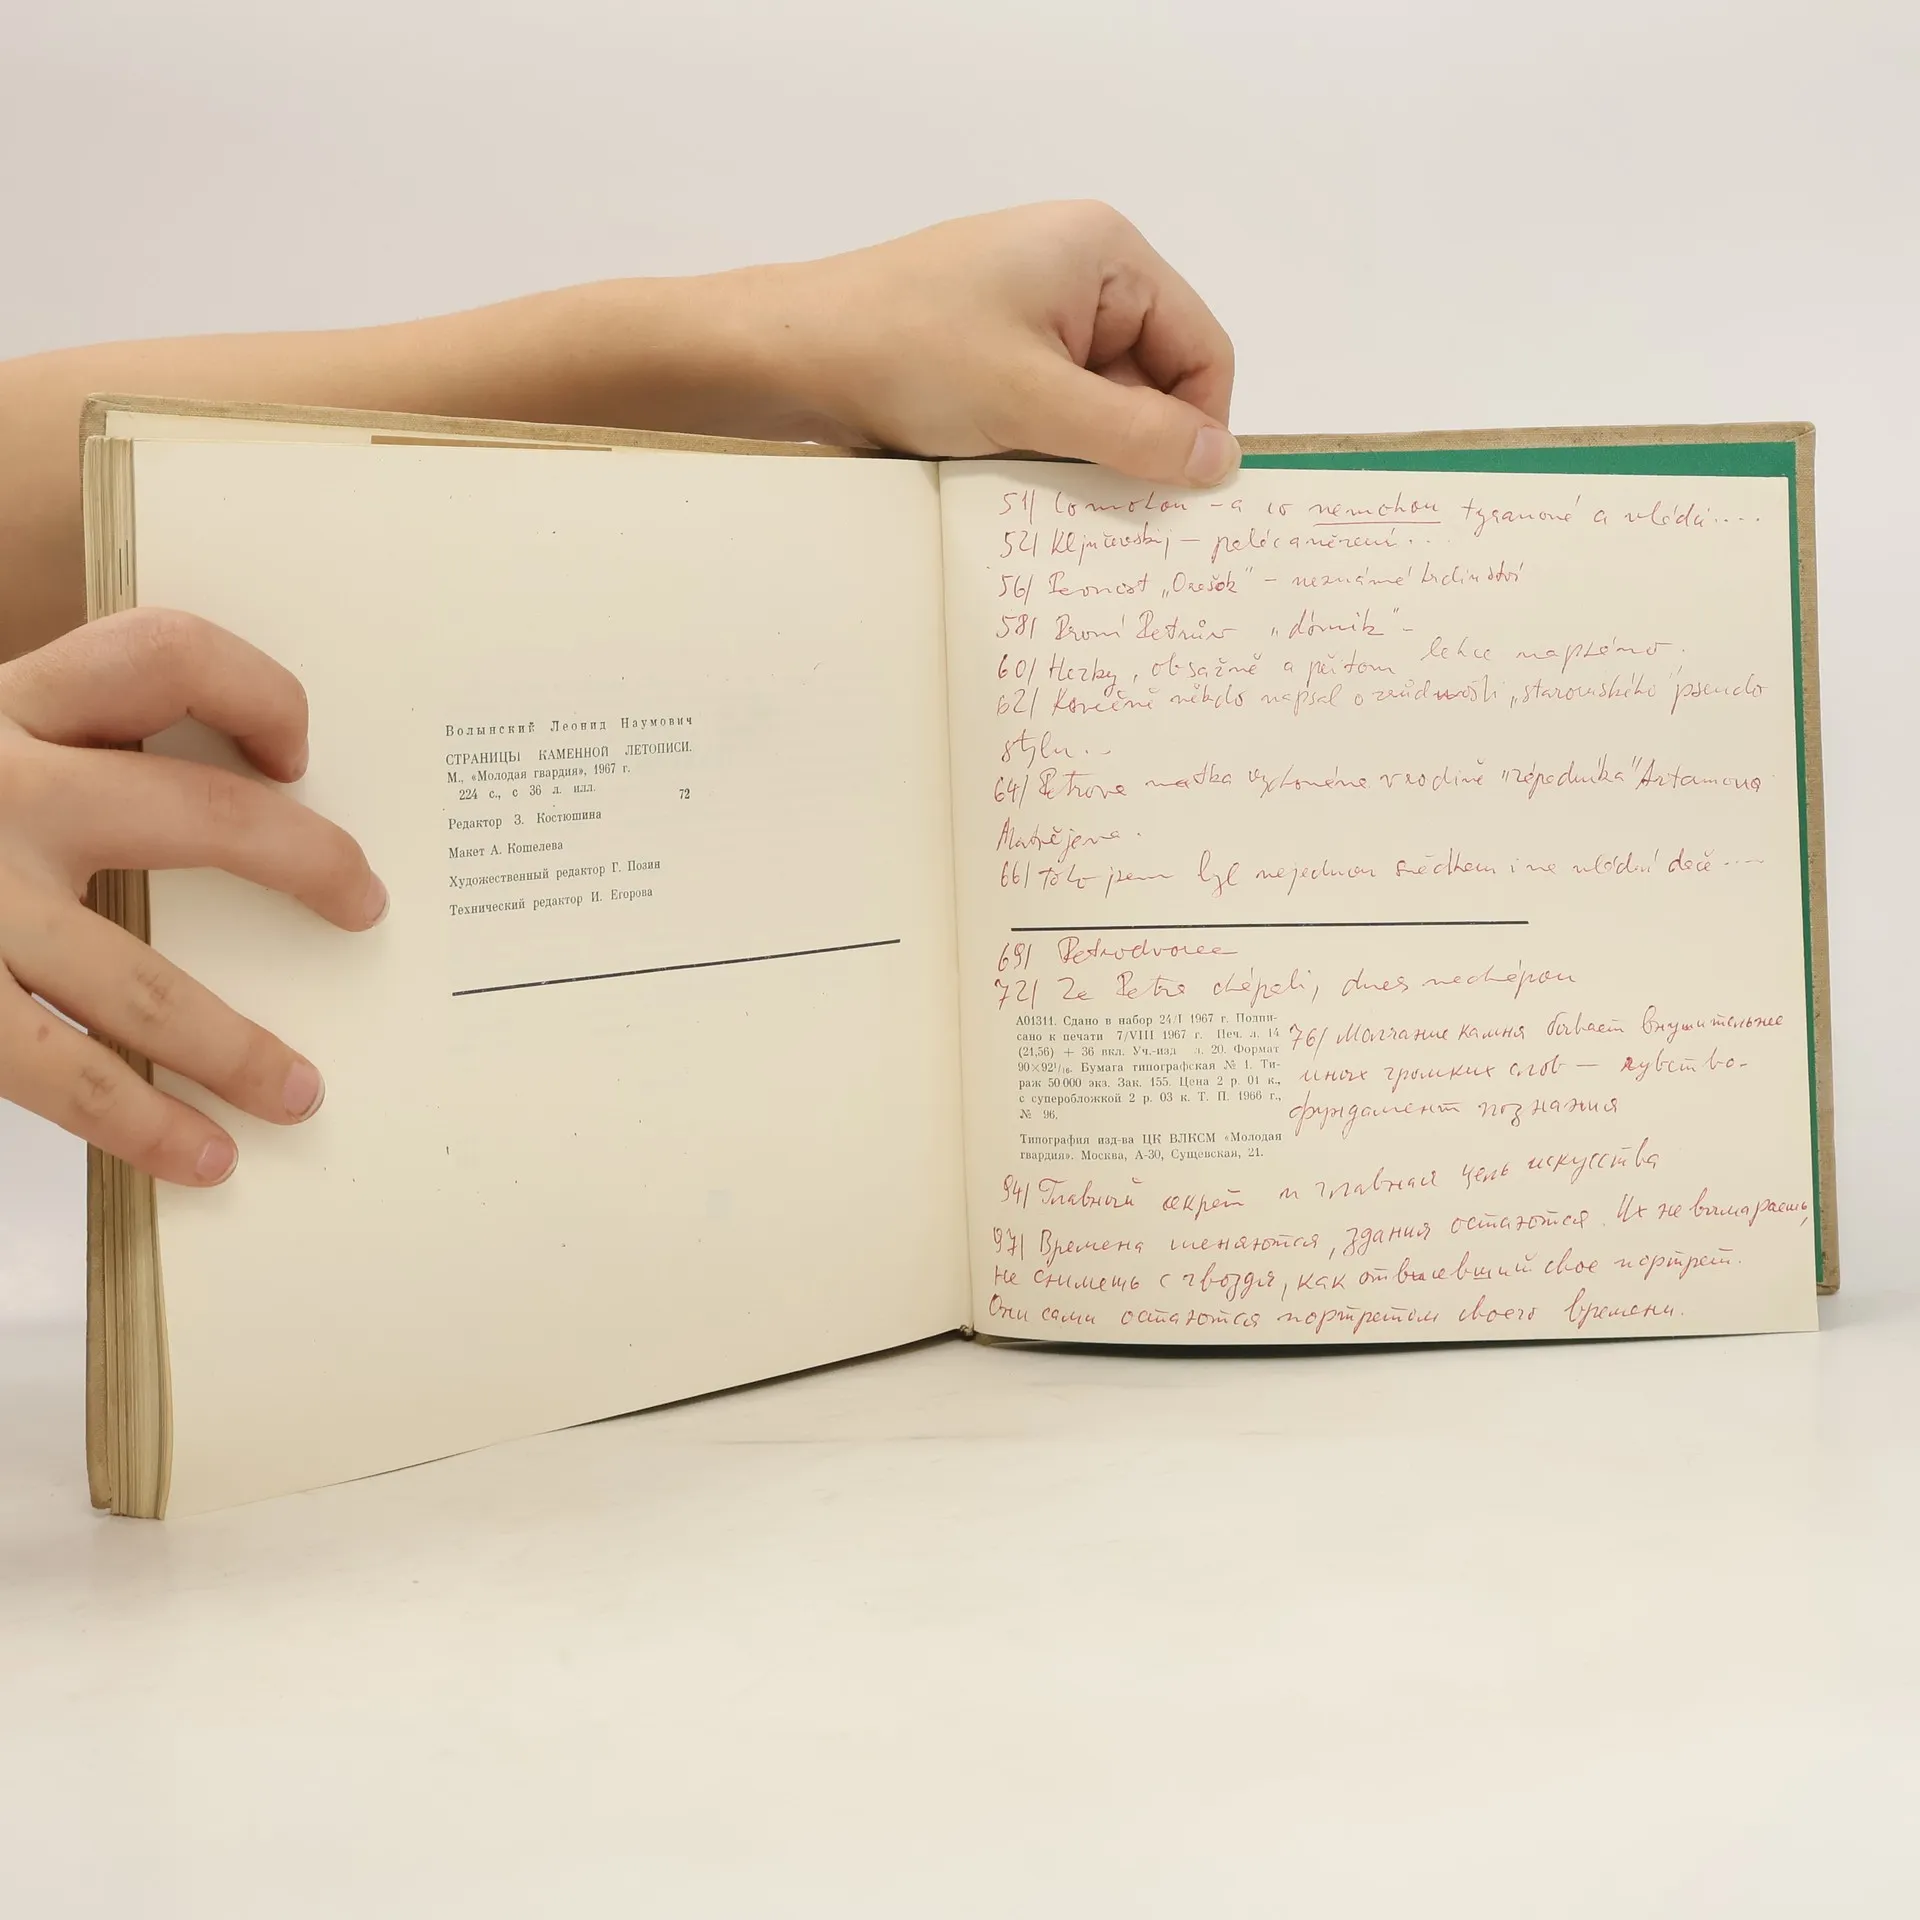 Волынский Леонид Наумович
СТРАНИЦЫ КАМЕННОЙ ЛЕТОПИСИ.
М., «Молодая гвардия», 1967 г.
224 с., с 36 л. илл.
72
Редактор З. Костюшина
Макет А. Кошелева
Художественный редактор Г. Позин
Технический редактор И. Егорова
51/ Co mohou – a co nemohou tyranové a vládci....
52/ Ključevskij – ...
56/ Pevnost „Orešek" – neznámé hrdinství
58/ První Petrův "domik" –
60/ Hezky, obsažně a přitom lehce napsáno.
62/ Konečně někdo napsal o zrůdnosti „staroruského" pseudo
stylu...
64/ Petrova matka vychována v rodině "západníka" Artamona
Matvějeva.
66/ toho jsem byl nejednou svědkem i na vládní dače ....
69/ Petrodvorec
72/ Za Petra chápali, dnes nechápou
А01311. Сдано в набор 24/I 1967 г. Подпи-
сано к печати 7/VIII 1967 г. Печ. л. 14
(21,56) + 36 вкл. Уч.-изд л. 20. Формат
90×92¹/₁₆. Бумага типографская № 1. Ти-
раж 50 000 экз. Зак. 155. Цена 2 р. 01 к.,
с суперобложкой 2 р. 03 к. Т. П. 1966 г.,
№ 96.
Типография изд-ва ЦК ВЛКСМ «Молодая
гвардия». Москва, А-30, Сущевская, 21.
76/ Молчание камня бывает внушительнее
иных громких слов — чувство-
фундамент познания
94/ Главный секрет и главная цель искусства
97/ Времена меняются, здания остаются. Их не вымараешь,
не снимешь с гвоздя, как отвисевший свое портрет.
Они сами остаются портретом своего времени.